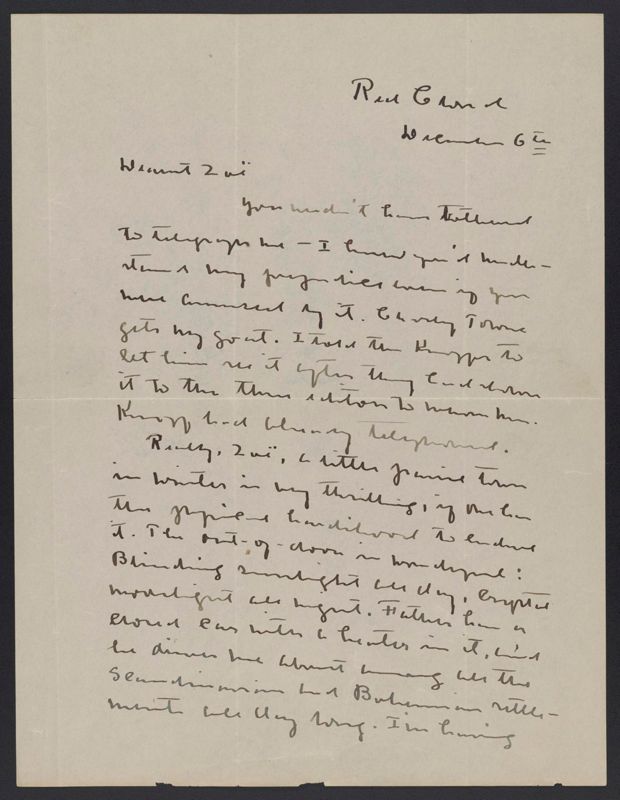 Red Cloud
December 6th
Dearest Zoë
You needn't have bothered
to telegraph me — I knew you'd under-
stand my perfectly even if you
were annoyed by it. Charley Towne
gets my goat. I told the Knopfs to
let him see it after they had shown
it to the three editors to whom Mrs.
Knopf had already telephoned.
Really, Zoë, a little prairie town
in winter is very thrilling, if one has
the physical hardihood to endure
it. The out-of-doors is wonderful:
Blinding sunlight all day, crystal
moonlight all night. Father has a
closed car with a heater in it, and
he drives me about among all the
Scandinavian and Bohemian settle-
ments all day long. I'm having